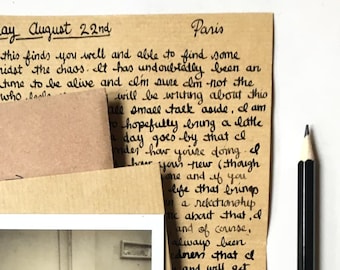 ay August 22nd Paris
this finds you well and able to find some
midst the chaos. It has undoubtedly been an
time to be alive and I'm sure I'm not the
who will be writing about this
ll small talk aside, I am
hopefully bring a little
a day goes by that I
nder how you're doing. I
how your new (though
one and if you
life that brings
a relationship
me about that, I
and of course,
always been
dness that I
and will get